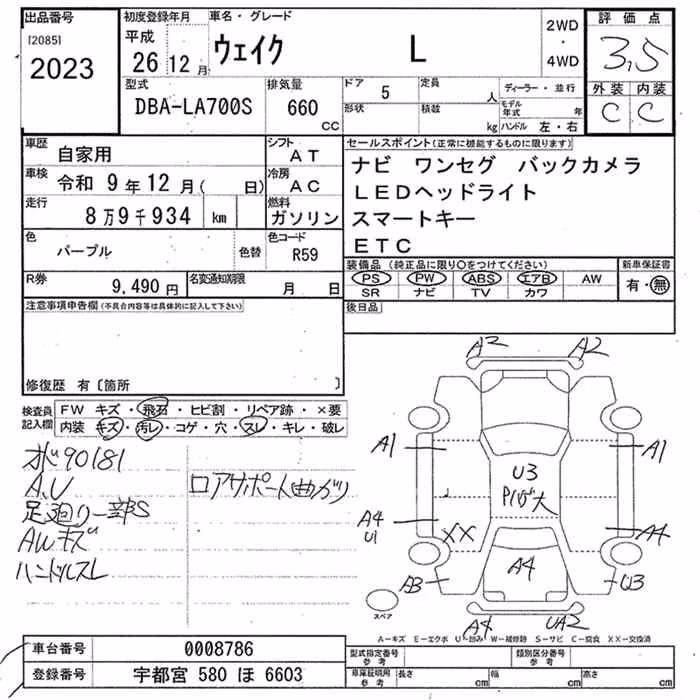 出品番号
[2085]
2023
初度登録年月
平成
26 12 月
車名・グレード
ウェイク L
2WD
・
4WD
評価点
3.5
外装 内装
C C
型式
DBA-LA700S
排気量
660
CC
ドア 5
形状
定員 人
積数 kg
ディーラー・並行
モデル年式 年
ハンドル 左・右
車歴
自家用
シフト
AT
車検
令和 9年12月( 日)
冷房
AC
走行
8万9千934 km
燃料
ガソリン
色
パープル
色替
色コード
R59
R券
9,490 円
名変通知期限
月 日
セールスポイント(正常に機能するものに限ります)
ナビ ワンセグ バックカメラ
LEDヘッドライト
スマートキー
ETC
装備品(純正品に限り○をつけてください)
PS PW ABS エアB AW
SR ナビ TV カワ
新車保証書
有・無
後日品
注意事項申告欄(不具合内容等は具体的に記入して下さい)
修復歴 有〔箇所 〕
検査員
記入欄
FW キズ・飛石・ヒビ割・リペア跡・×要
内装 キズ・汚レ・コゲ・穴・スレ・キレ・破レ
ボ90181
A.U
足廻り一部S
AWキズ
ハンドルスレ
ロアサポート曲ガリ
A2 A2
A1 A1
U3
A4
U1
XX
A4
A3
A4
U3
A4 UA2
スペア
A―キズ E―エクボ U―凹み W―補修跡 S―サビ C―腐食 XX―交換済
車台番号
0008786
登録番号
宇都宮 580 ほ 6603
型式指定番号
参考
類別区分番号
参考
車庫証明用
参考
長さ cm
幅 cm
高さ cm